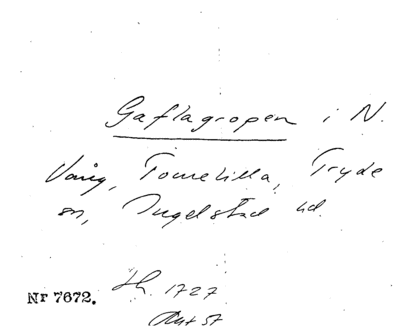 Gaflagropen i N.
Vång, Tomelilla, Tryde
sn, Ingelstad hd.
Nr 7672. Lh. 1727